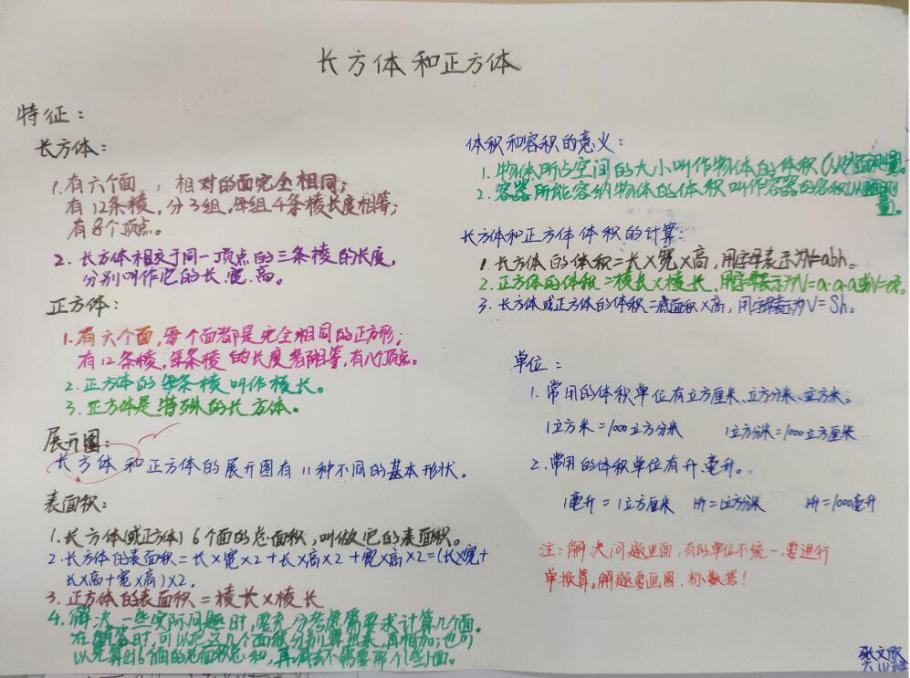 长方体和正方体
特征：
长方体：
1.有六个面，相对的面完全相同；
有12条棱，分3组，每组4条棱长度相等；
有8个顶点。
2.长方体相交于同一顶点的三条棱的长度，
分别叫作它的长、宽、高。
正方体：
1.有六个面，每个面都是完全相同的正方形；
有12条棱，每条棱的长度都相等，有八个顶点。
2.正方体的每条棱叫作棱长。
3.正方体是特殊的长方体。
展开图：
长方体和正方体的展开图有11种不同的基本形状。
表面积：
1.长方体(或正方体)6个面的总面积，叫做它的表面积。
2.长方体的表面积=长×宽×2+长×高×2+宽×高×2=(长×宽+
长×高+宽×高)×2.
3.正方体的表面积=棱长×棱长
4.解决一些实际问题时，要充分考虑需要求计算几个面。
在解答时，可以把这几个面积分别算出来，再相加；也可
以先算出6个面的总面积之和，再减去不需要那个(些)面。
体积和容积的意义：
1.物体所占空间的大小叫作物体的体积(从外面测量)。
2.容器所能容纳物体的体积叫作容器的容积(从里面测
量)。
长方体和正方体体积的计算：
1.长方体的体积=长×宽×高，用字母表示为V=abh。
2.正方体的体积=棱长×棱长，用字母表示为V=a·a·a或V=a³.
3.长方体或正方体的体积=底面积×高，用字母表示为V=Sh。
单位：
1.常用的体积单位有立方厘米、立方分米、立方米。
1立方米=1000立方分米 1立方分米=1000立方厘米
2.常用的体积单位有升、毫升。
1毫升=1立方厘米 1升=1立方分米 1升=1000毫升
注：解决问题里面，有的单位不统一，要进行
单换算。解题要画图、标数据！
六(1)班